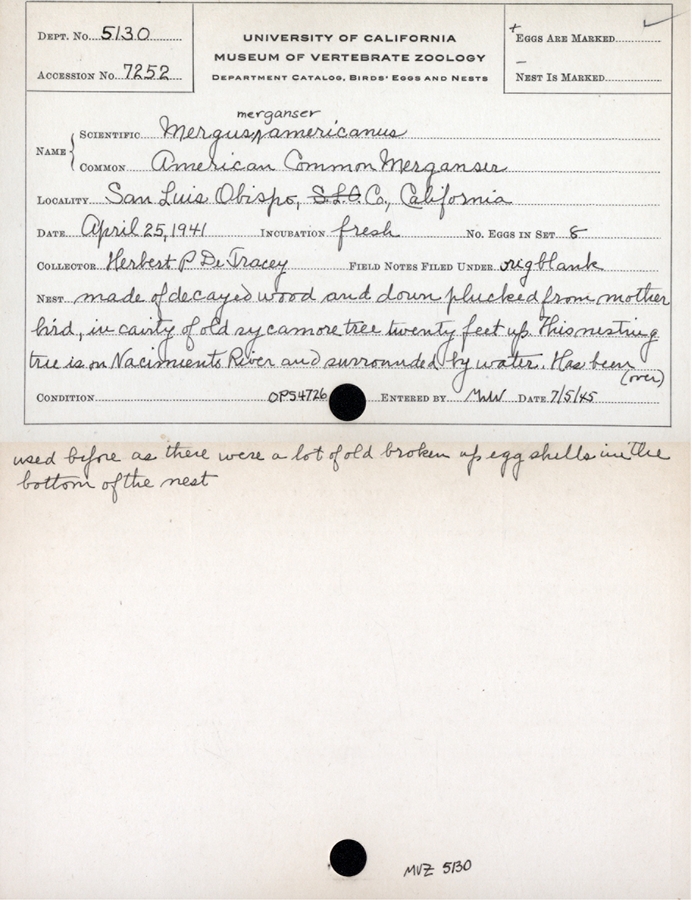 Dept. No. 5130
Accession No. 7252
UNIVERSITY OF CALIFORNIA
MUSEUM OF VERTEBRATE ZOOLOGY
Department Catalog, Birds' Eggs and Nests
+ Eggs Are Marked ✓
– Nest Is Marked
merganser
Name { Scientific Mergus americanus
Common American Common Merganser
Locality San Luis Obispo, S.L.O. Co., California
Date April 25, 1941 Incubation fresh No. Eggs in Set 8
Collector Herbert P DeTracey Field Notes Filed Under orig blank
Nest made of decayed wood and down plucked from mother
bird, in cavity of old sycamore tree twenty feet up. This nesting
tree is on Nacimiento River and surrounded by water. Has been
(over)
Condition OPS4726 Entered by Date 7/5/45
used before as there were a lot of old broken up egg shells in the
bottom of the nest
MVZ 5130